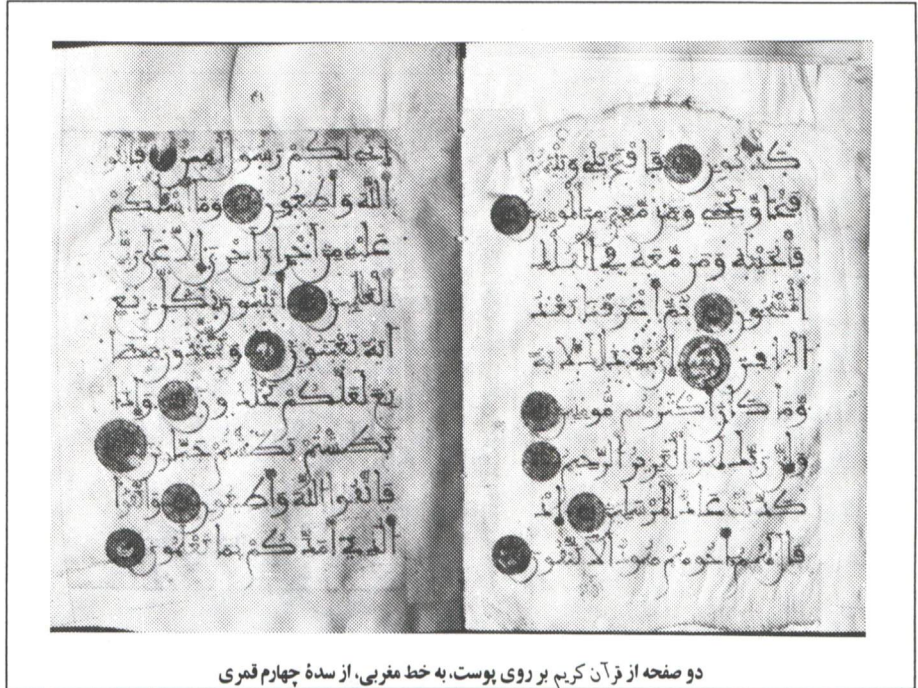 كَذَّبُونِ فَافْتَحْ بَيْنِي وَبَيْنَهُمْ
فَتْحًا وَنَجِّنِي وَمَن مَّعِيَ مِنَ الْمُومِنِينَ
فَأَنجَيْنَهُ وَمَن مَّعَهُ فِي الْفُلْكِ
الْمَشْحُونِ ثُمَّ أَغْرَقْنَا بَعْدُ
الْبَاقِينَ إِنَّ فِي ذَلِكَ لَآيَةً
وَمَا كَانَ أَكْثَرُهُم مُّومِنِينَ
وَإِنَّ رَبَّكَ لَهُوَ الْعَزِيزُ الرَّحِيمُ
كَذَّبَتْ عَادٌ الْمُرْسَلِينَ إِذْ
قَالَ لَهُمْ أَخُوهُمْ هُودٌ أَلَا تَتَّقُونَ
إِنِّي لَكُمْ رَسُولٌ أَمِينٌ فَاتَّقُوا
اللَّهَ وَأَطِيعُونِ وَمَا أَسْئَلُكُمْ
عَلَيْهِ مِنْ أَجْرٍ إِنْ أَجْرِيَ إِلَّا عَلَى رَبِّ
الْعَلَمِينَ أَتَبْنُونَ بِكُلِّ رِيعٍ
ءَايَةً تَعْبَثُونَ وَتَتَّخِذُونَ مَصَا
نِعَ لَعَلَّكُمْ تَخْلُدُونَ وَإِذَا
بَطَشْتُم بَطَشْتُمْ جَبَّارِينَ
فَاتَّقُوا اللَّهَ وَأَطِيعُونِ وَاتَّقُوا
الَّذِي أَمَدَّكُم بِمَا تَعْلَمُونَ
دو صفحه از قرآن کریم بر روی پوست، به خط مغربی، از سدهٔ چهارم قمری